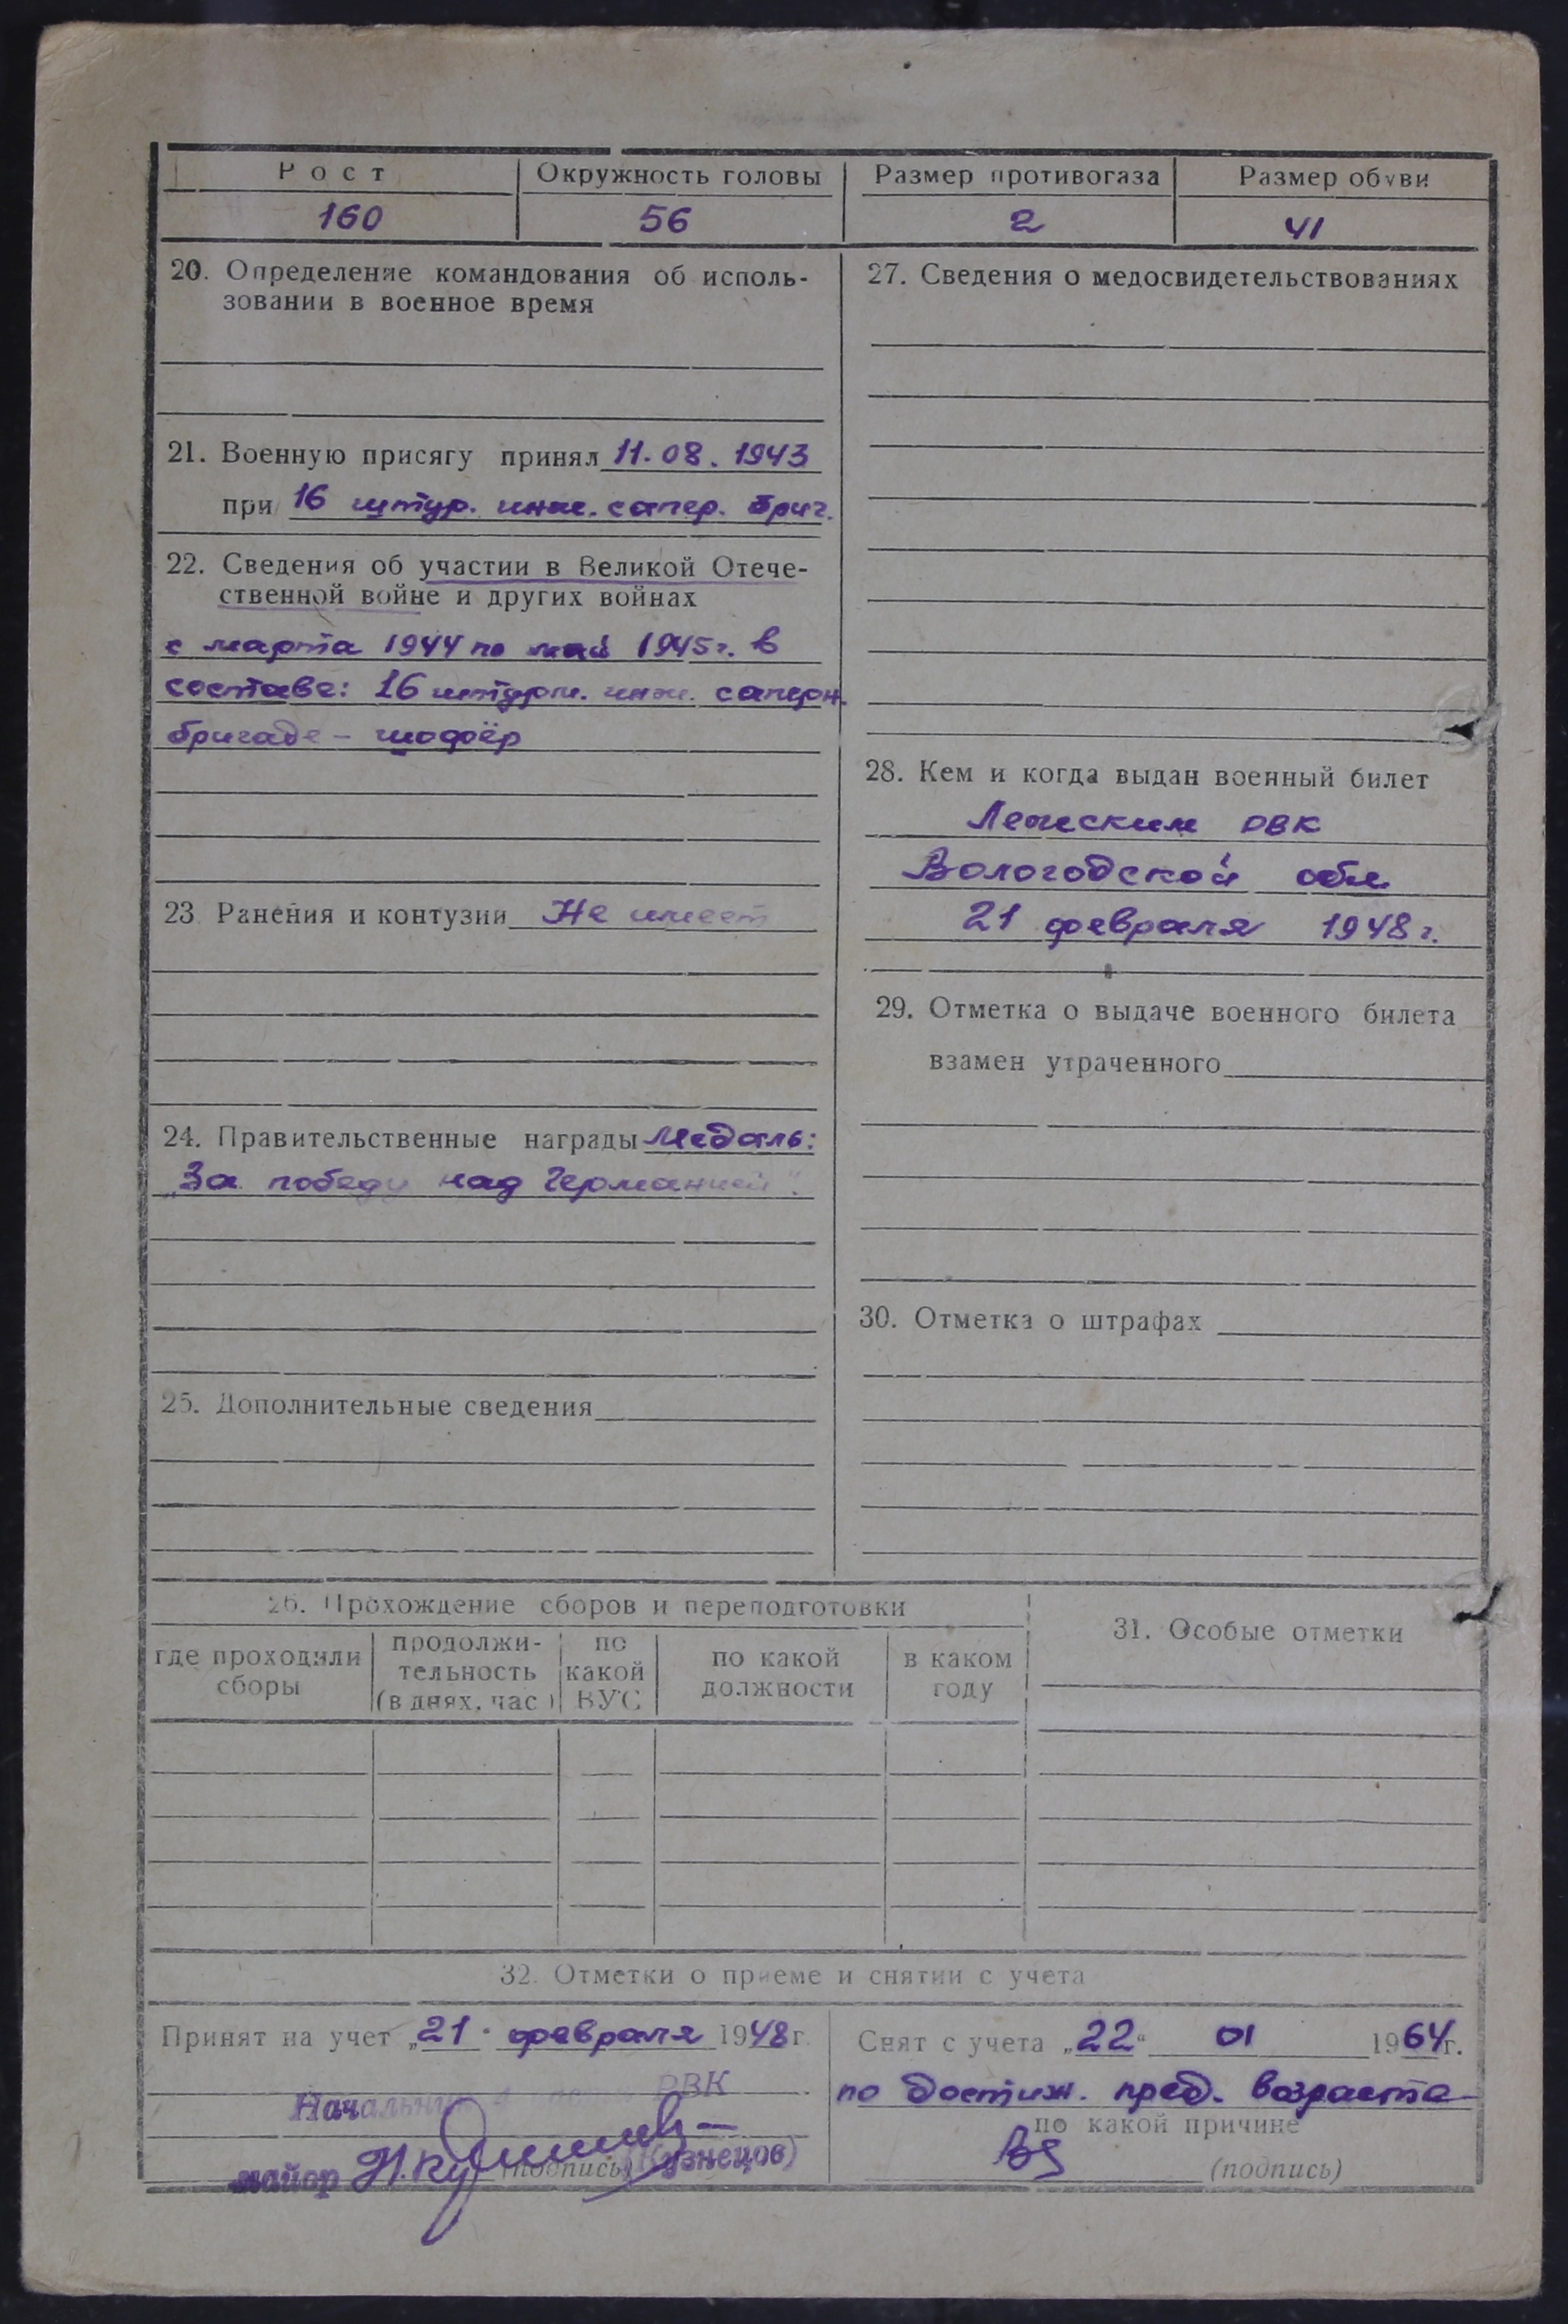 Рост Окружность головы Размер противогаза Размер обуви
160 56 2 41
20. Определение командования об исполь-
зовании в военное время
21. Военную присягу принял 11.08.1943
при 16 штур. инж. сапер. бриг.
22. Сведения об участии в Великой Отече-
ственной войне и других войнах
с марта 1944 по май 1945г. в
составе: 16 штурм. инж. саперн.
бригаде - шофёр
23. Ранения и контузии Не имеет
24. Правительственные награды Медаль:
„За победу над Германией".
25. Дополнительные сведения
27. Сведения о медосвидетельствованиях
28. Кем и когда выдан военный билет
Лежским РВК
Вологодской обл.
21 февраля 1948г.
29. Отметка о выдаче военного билета
взамен утраченного
30. Отметка о штрафах
26. Прохождение сборов и переподготовки
где проходили
сборы
продолжи-
тельность
(в днях, час)
по
какой
ВУС
по какой
должности
в каком
году
31. Особые отметки
32. Отметки о приеме и снятии с учета
Принят на учет „21" февраля 1948г.
Начальник РВК
майор (подпись) (Кузнецов)
Снят с учета „22" 01 1964г.
по достиж. пред. возраста
по какой причине
(подпись)